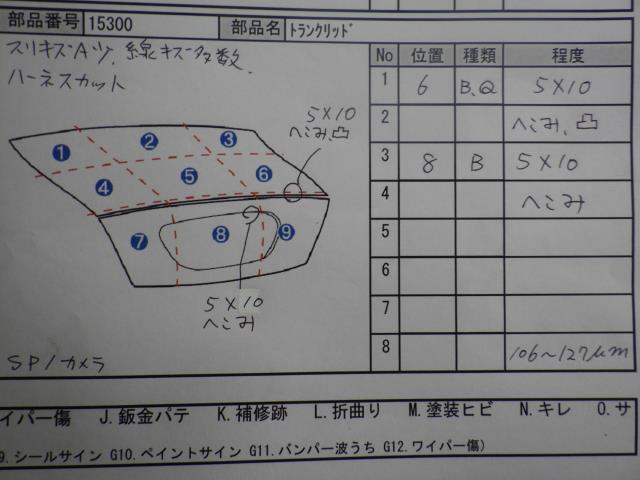 部品番号 15300 部品名 トランクリッド
スリキズ・Aツ、線キズ多数、
ハーネスカット
No 位置 種類 程度
1 6 B、Q 5×10
2 へこみ、凸
3 8 B 5×10
4 へこみ
5
6
7
8 106~127μm
5×10
へこみ、凸
1 2 3
4 5 6
7 8 9
5×10
へこみ
SP/カメラ
イパー傷 J.鈑金パテ K.補修跡 L.折曲り M.塗装ヒビ N.キレ O.サ
9.シールサイン G10.ペイントサイン G11.バンパー波うち G12.ワイパー傷)